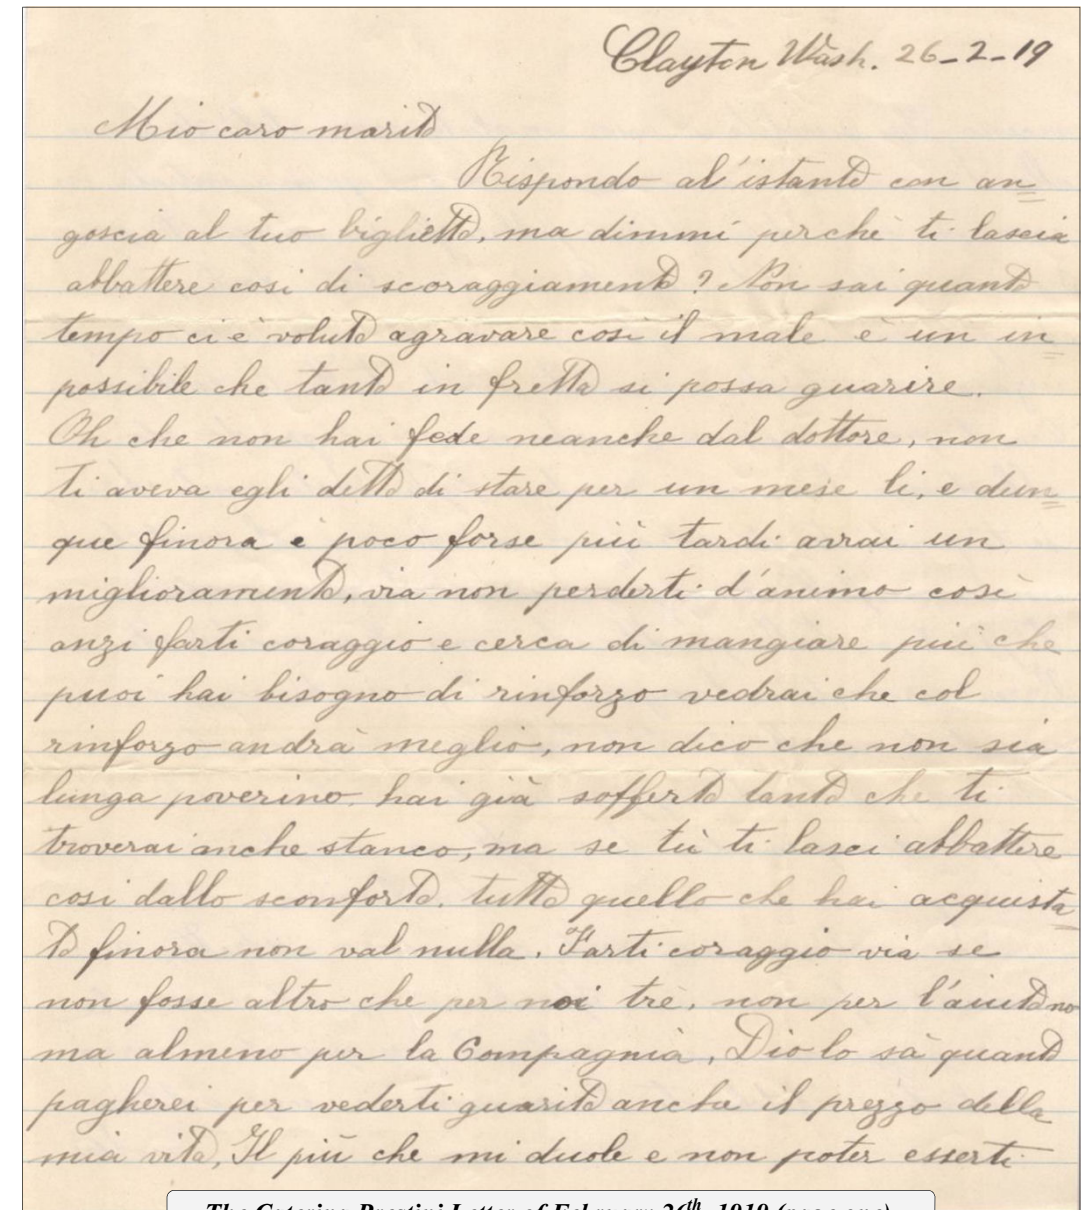 Clayton Wash. 26-2-19
Mio caro marito
Rispondo al'istante con an=
goscia al tuo biglietto, ma dimmi perchè ti lascia
abbattere cosi di scoraggiamento? Non sai quanto
tempo ci è voluto agravare cosi il male è un in=
possibile che tanto in fretta si possa guarire.
Oh che non hai fede neanche dal dottore, non
ti aveva egli detto di stare per un mese li, e dun=
que finora è poco forse più tardi avrai un
miglioramento, via non perderti d'animo così
anzi farti coraggio e cerca di mangiare più che
puoi hai bisogno di rinforzo vedrai che col
rinforzo andrà meglio, non dico che non sia
lunga poverino hai già sofferto tanto che ti
troverai anche stanco, ma se tù ti lasci abbattere
cosi dallo sconforto. tutto quello che hai acquista=
to finora non val nulla. Farti coraggio via se
non fosse altro che per noi trè, non per l'aiuto no
ma almeno per la Compagnià, Dio lo sà quanto
pagherei per vederti guarito anche il prezzo della
mia vita, Il più che mi duole e non poter esserti
The Caterina Prestini Letter of February 26th, 1919 (page one)